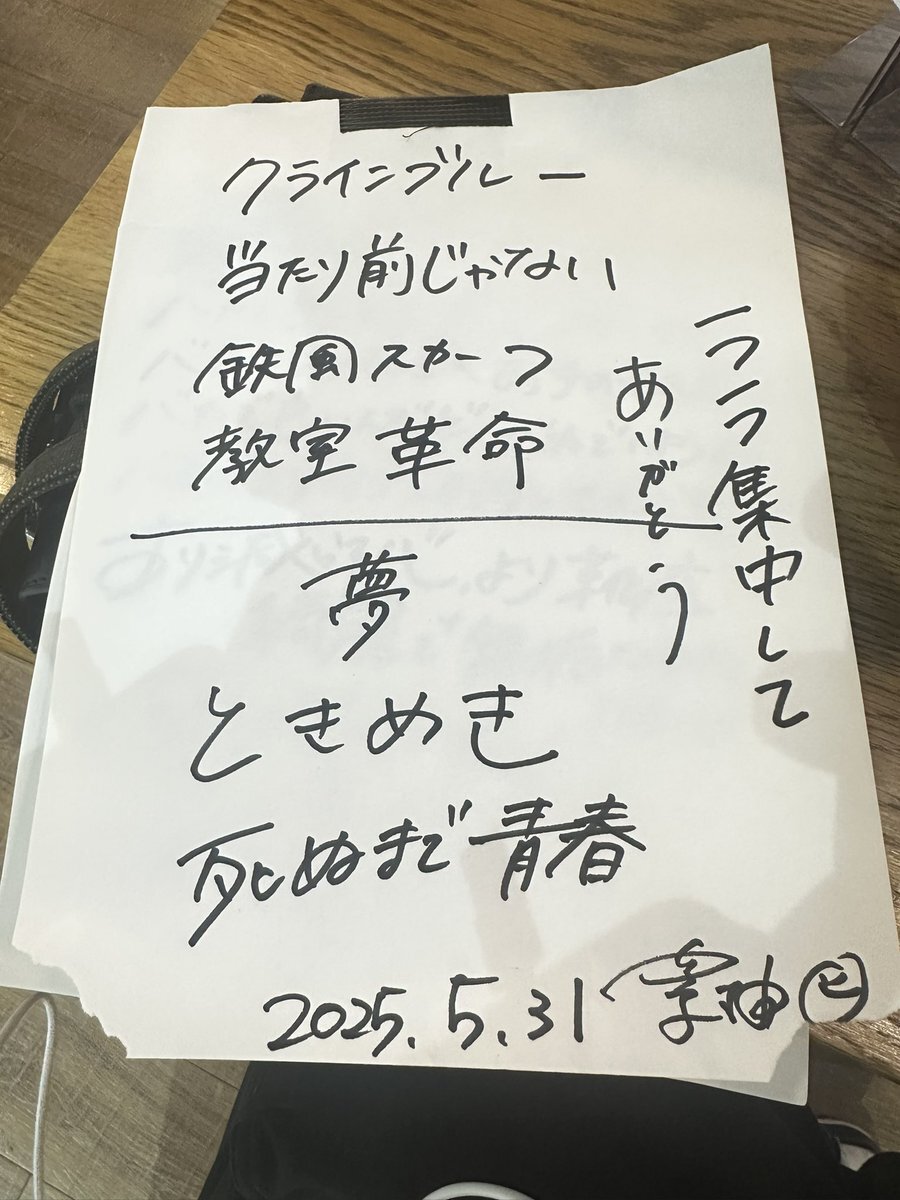 クラインブルー
当たり前じゃない
鉄風スカーフ
教室革命
一つ一つ集中して
ありがとう
夢
ときめき
死ぬまで青春
2025.5.31